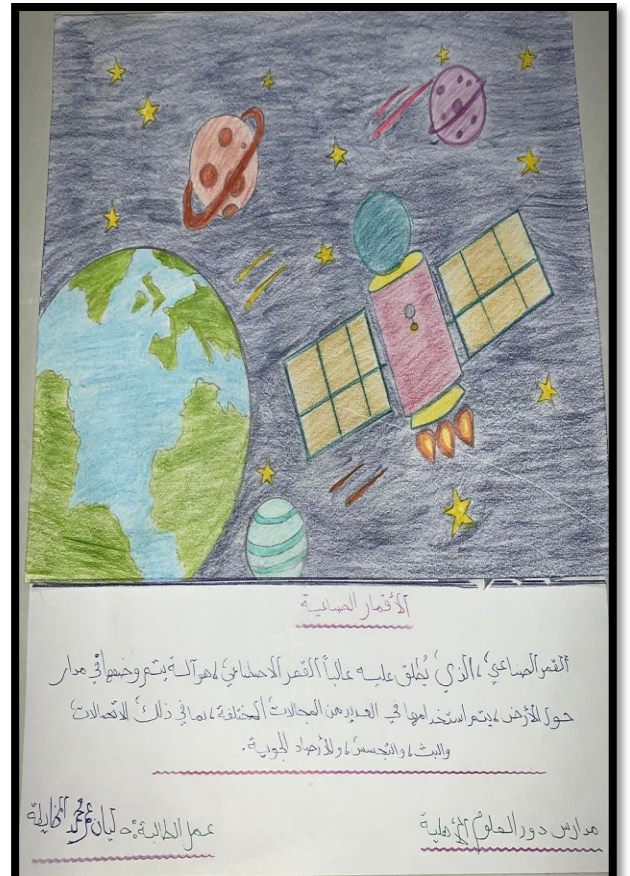 الأقمار الصناعية
القمر الصناعي، الذي يُطلق عليه غالباً القمر الاصطناعي، هو آلة يتم وضعها في مدار
حول الأرض، يتم استخدامها في العديد من المجالات المختلفة، بما في ذلك الاتصالات
والبث، والتجسس، والأرصاد الجوية.
مدارس دور العلوم الأهلية
عمل الطالبة: ليان عمر محمد